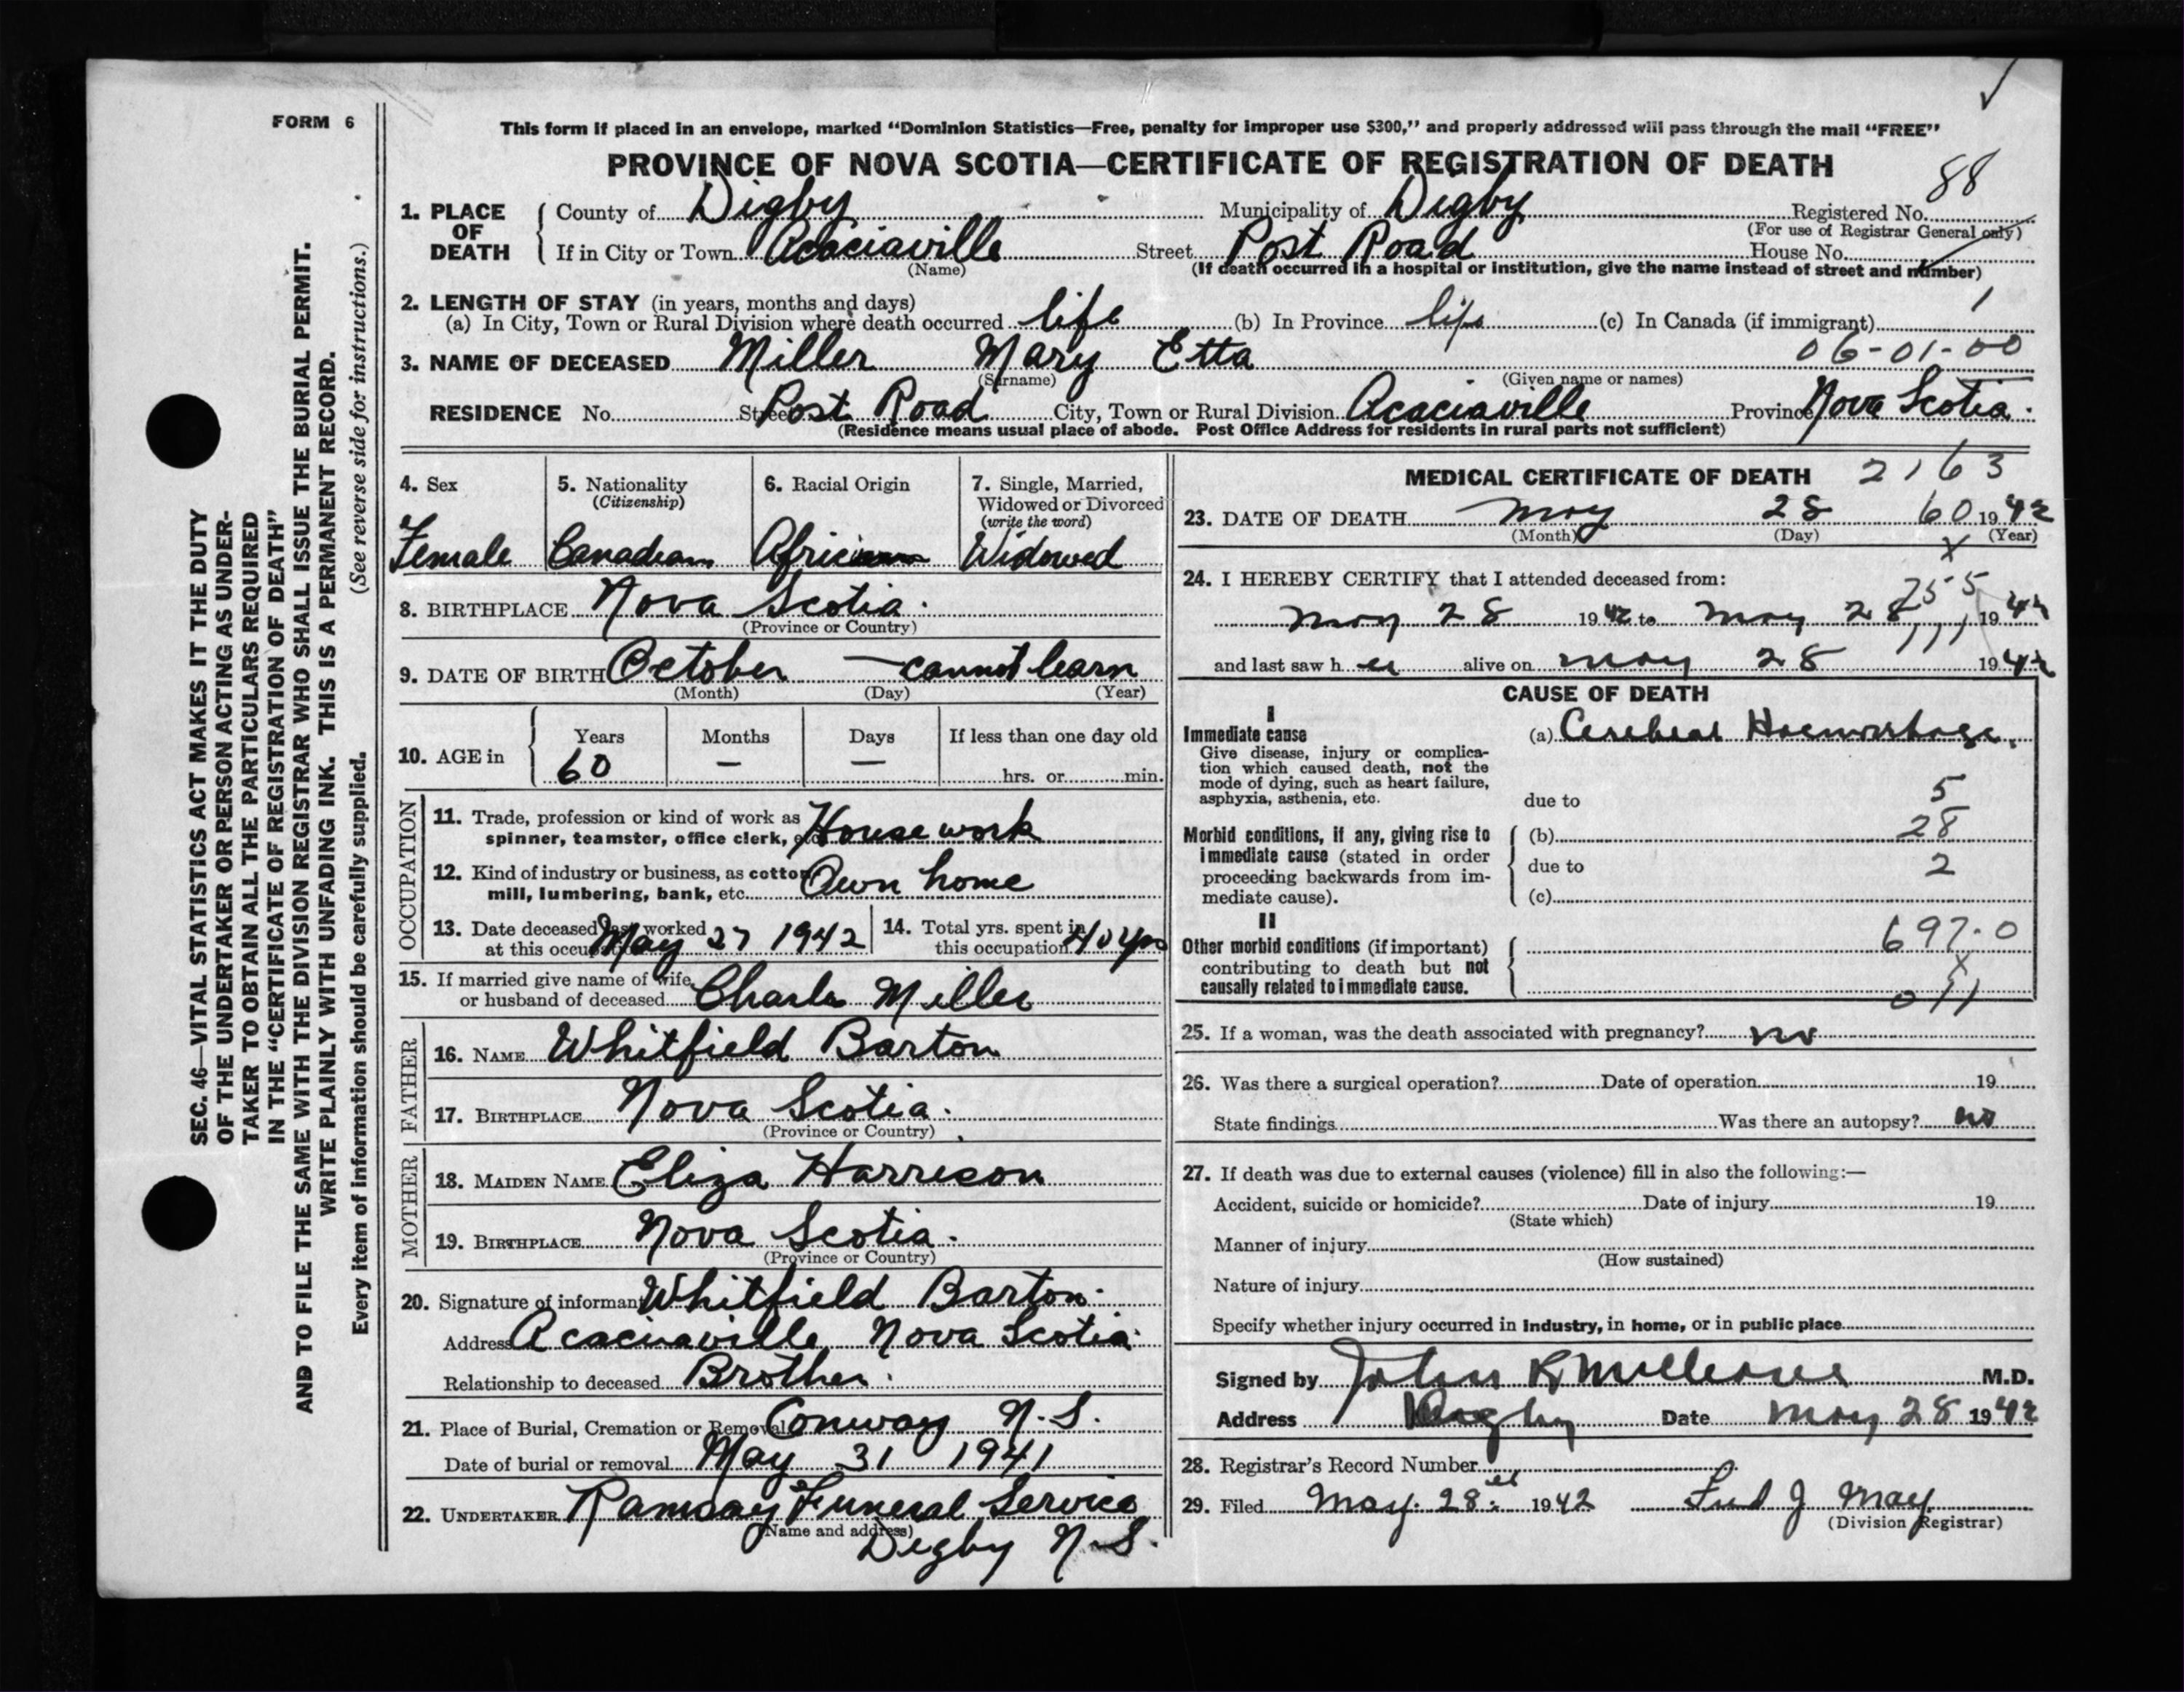 FORM 6
SEC. 46—VITAL STATISTICS ACT MAKES IT THE DUTY
OF THE UNDERTAKER OR PERSON ACTING AS UNDER-
TAKER TO OBTAIN ALL THE PARTICULARS REQUIRED
IN THE "CERTIFICATE OF REGISTRATION OF DEATH"
AND TO FILE THE SAME WITH THE DIVISION REGISTRAR WHO SHALL ISSUE THE BURIAL PERMIT.
WRITE PLAINLY WITH UNFADING INK. THIS IS A PERMANENT RECORD.
Every item of information should be carefully supplied. (See reverse side for instructions.)
This form if placed in an envelope, marked "Dominion Statistics—Free, penalty for improper use $300," and properly addressed will pass through the mail "FREE"
PROVINCE OF NOVA SCOTIA—CERTIFICATE OF REGISTRATION OF DEATH
88
1. PLACE OF DEATH County of Digby Municipality of Digby Registered No.
(For use of Registrar General only)
If in City or Town Acaciaville Street Post Road House No.
(Name) (If death occurred in a hospital or institution, give the name instead of street and number)
2. LENGTH OF STAY (in years, months and days)
(a) In City, Town or Rural Division where death occurred life (b) In Province life (c) In Canada (if immigrant) 1
06-01-00
3. NAME OF DECEASED Miller Mary Etta
(Surname) (Given name or names)
RESIDENCE No. Street Post Road City, Town or Rural Division Acaciaville Province Nova Scotia.
(Residence means usual place of abode. Post Office Address for residents in rural parts not sufficient)
4. Sex
Female
5. Nationality
(Citizenship)
Canadian
6. Racial Origin
African
7. Single, Married,
Widowed or Divorced
(write the word)
Widowed
8. BIRTHPLACE Nova Scotia.
(Province or Country)
9. DATE OF BIRTH October — cannot learn
(Month) (Day) (Year)
10. AGE in Years Months Days If less than one day old
60 — — hrs. or min.
OCCUPATION
11. Trade, profession or kind of work as
spinner, teamster, office clerk, etc. Housework
12. Kind of industry or business, as cotton
mill, lumbering, bank, etc. Own home
13. Date deceased last worked
at this occupation May 27 1942
14. Total yrs. spent in
this occupation 40 yrs
15. If married give name of wife
or husband of deceased Charles Miller
FATHER
16. NAME Whitfield Barton
17. BIRTHPLACE Nova Scotia.
(Province or Country)
MOTHER
18. MAIDEN NAME Eliza Harrison
19. BIRTHPLACE Nova Scotia.
(Province or Country)
20. Signature of informant Whitfield Barton.
Address Acaciaville Nova Scotia.
Relationship to deceased Brother.
21. Place of Burial, Cremation or Removal Conway N.S.
Date of burial or removal May 31 1941
22. UNDERTAKER Ramsay Funeral Service
(Name and address)
Digby N.S.
MEDICAL CERTIFICATE OF DEATH 2163
23. DATE OF DEATH May 28 60 1942
(Month) (Day) (Year)
x
24. I HEREBY CERTIFY that I attended deceased from:
255
May 28 1942 to May 28 1942
111
and last saw her alive on May 28 1942
CAUSE OF DEATH
I
Immediate cause
Give disease, injury or complica-
tion which caused death, not the
mode of dying, such as heart failure,
asphyxia, asthenia, etc.
(a) Cerebral Haemorrhage.
due to 5
Morbid conditions, if any, giving rise to
immediate cause (stated in order
proceeding backwards from im-
mediate cause).
(b) 28
due to 2
(c)
II
Other morbid conditions (if important)
contributing to death but not
causally related to immediate cause.
697.0
x
011
25. If a woman, was the death associated with pregnancy? no
26. Was there a surgical operation? Date of operation 19
State findings Was there an autopsy? no
27. If death was due to external causes (violence) fill in also the following:—
Accident, suicide or homicide? Date of injury 19
(State which)
Manner of injury
(How sustained)
Nature of injury
Specify whether injury occurred in industry, in home, or in public place
Signed by John R M.D.
Address Digby Date May 28 1942
28. Registrar's Record Number
29. Filed May. 28th 1942 Fred J May
(Division Registrar)